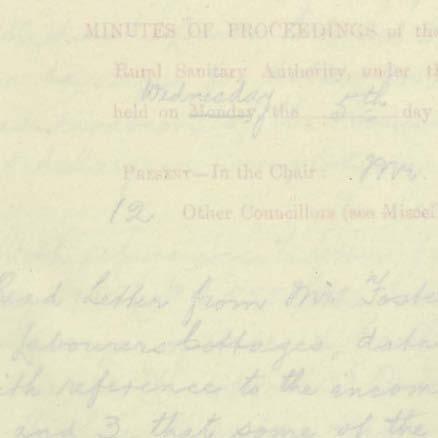 MINUTES OF PROCEEDINGS of the
Rural Sanitary Authority, under th
Wednesday
held on Monday, the 5th day
PRESENT—In the Chair: Mr.
12 Other Councillors (see Miscel
Read Letter from Mr Foste
labourers Cottages, date
ith reference to the incom
and 3 that some of the